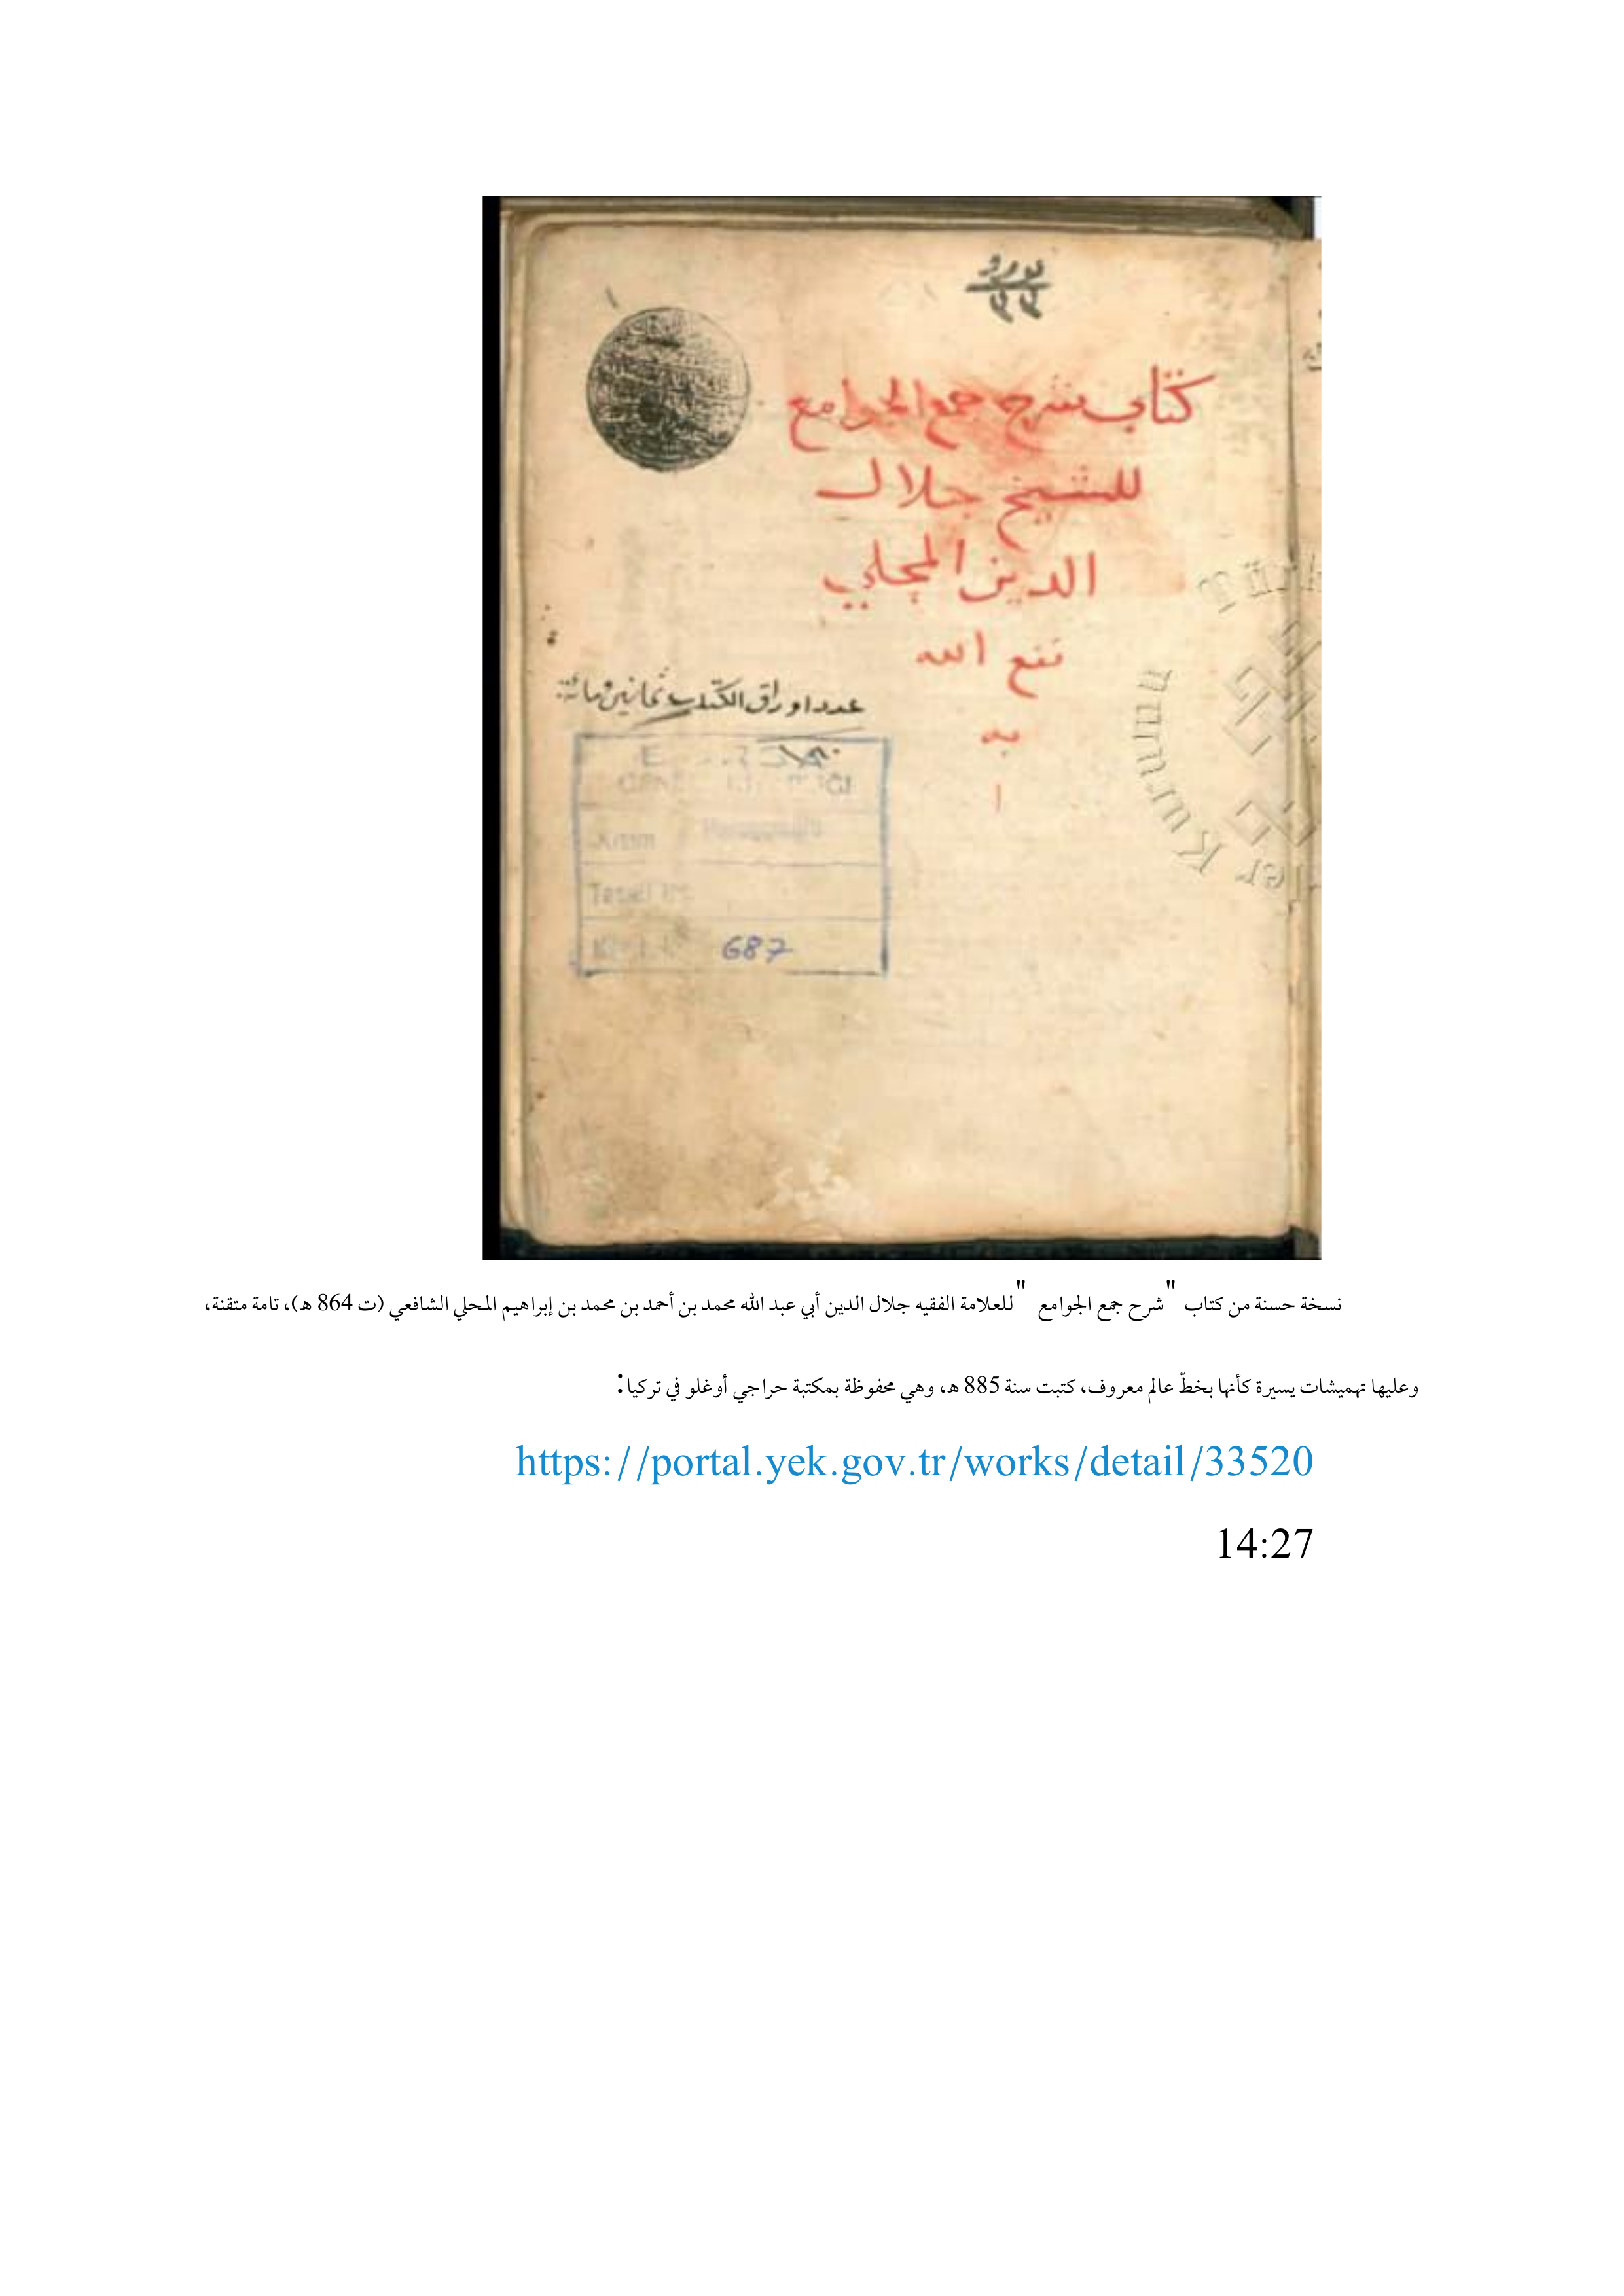 كتاب شرح جمع الجوامع
للشيخ جلال
الدين المحلي
نفع الله
به
ا
عدد اوراق الكتاب ثمانين ومائة
687
نسخة حسنة من كتاب "شرح جمع الجوامع " للعلامة الفقيه جلال الدين أبي عبد الله محمد بن أحمد بن محمد بن إبراهيم المحلي الشافعي (ت 864 هـ)، تامة متقنة،
وعليها تهميشات يسيرة كأنها بخطّ عالم معروف، كتبت سنة 885 هـ، وهي محفوظة بمكتبة حراجي أوغلو في تركيا:
https://portal.yek.gov.tr/works/detail/33520
14:27